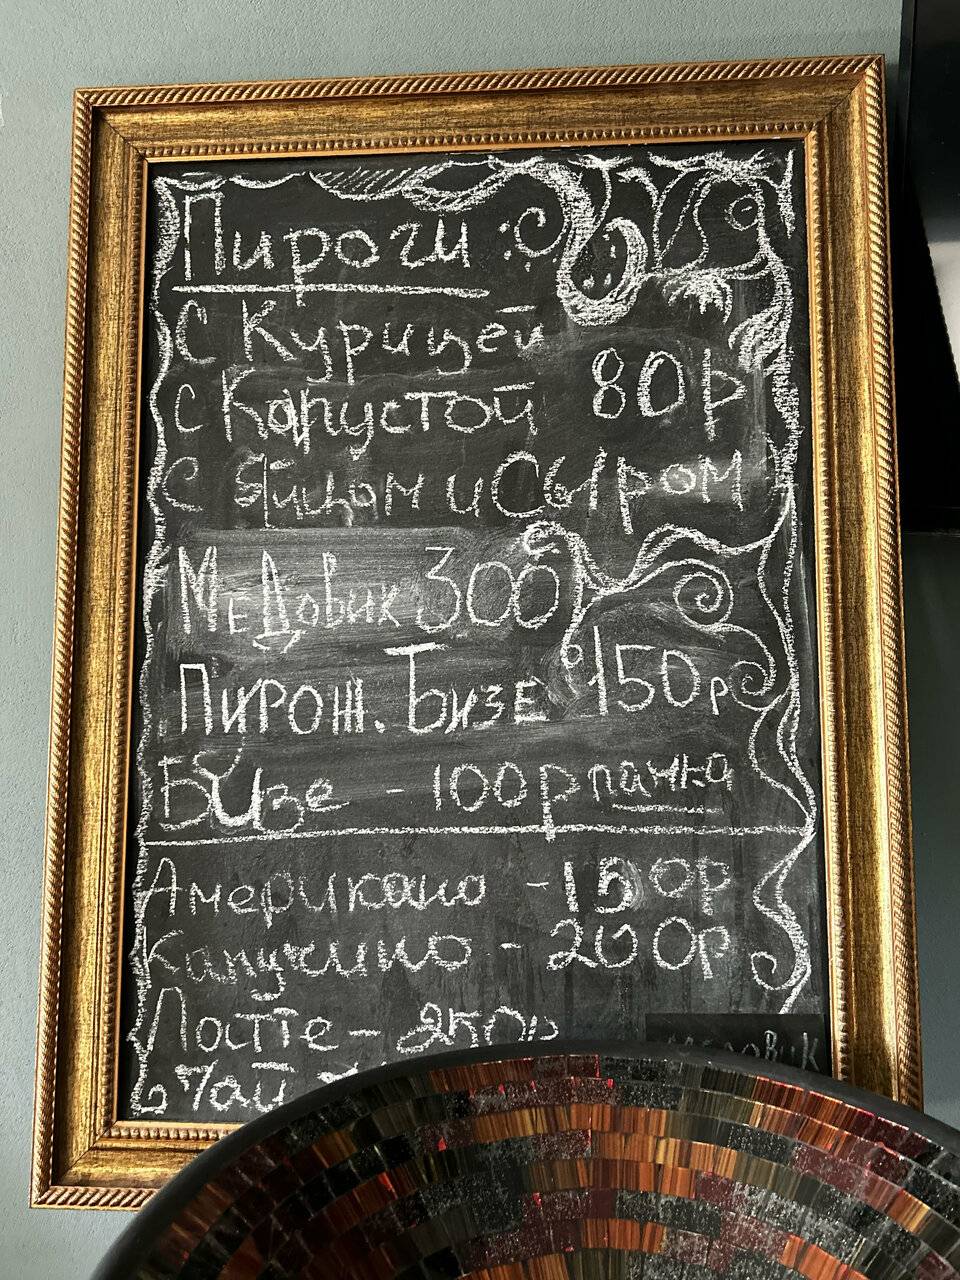 Пироги:
с Курицей
с Капустой 80р
с яйцом и Сыром
Медовик 300
Пирож. Бизе 150р
Бизе - 100р пачка
Американо - 150р
Капучино - 200р
Латте - 250р
Чай
Медовик